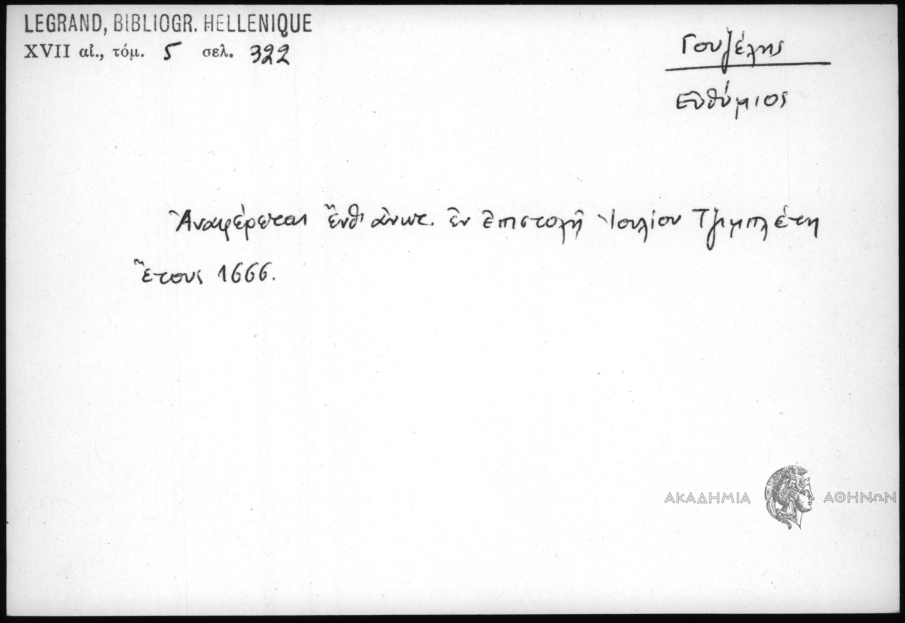 LEGRAND, BIBLIOGR. HELLENIQUE
XVII αἰ., τόμ. 5 σελ. 322
Γουζέλης
Εὐθύμιος
Ἀναφέρεται ἔνθ' ἀνωτ. ἐν ἐπιστολῇ Ἰουλίου Τζιμπλέτη
ἔτους 1666.
ΑΚΑΔΗΜΙΑ ΑΘΗΝΩΝ